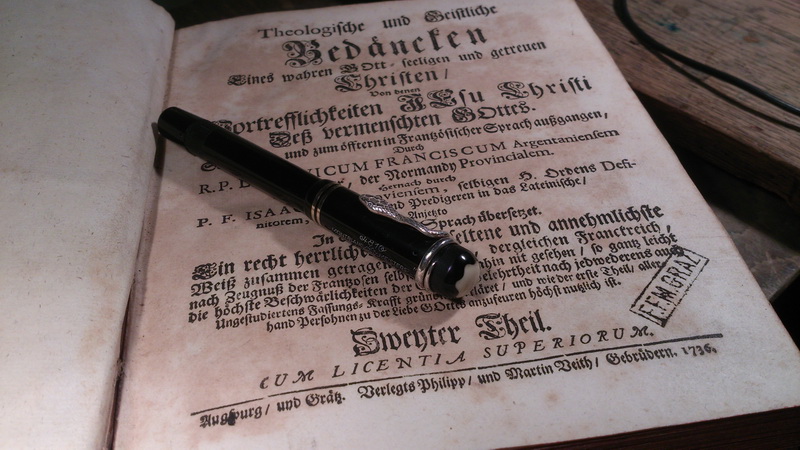 Theologische und Geistliche
Bedäncken
Eines wahren GOtt-seeligen und getreuen
Christen/
Von denen
Vortrefflichkeiten JEsu Christi
Deß vermenschten GOttes.
und zum öfftern in Frantzösischer Sprach außgangen,
Durch
R.P. ICUM FRANCISCUM Argentaniensem
der Normandy Provincialem.
Hernach durch
P. F. ISAA selbigen H. Ordens Defi-
nitorem, und Predigern in das Lateinische/
Anjetzo
Sprach übersetzet.
In seltene und annehmlichste
Ein recht herrlich dergleichen Franckreich/
Weiß zusammen getragen hin nit gesehen/ so gantz leicht
nach Zeugnuß der Frantzosen selb elehrtheit nach jedwederens auch
die höchste Beschwärlichkeiten der und wie der erste Theil/ aller
Ungestudiertens Fassungs-Krafft gründ
hand Persohnen zu der Liebe GOttes anzufeuren höchst nutzlich ist.
F.F.M. GRAZ
Zweyter Theil.
CUM LICENTIA SUPERIORUM.
Augspurg/ und Grätz. Verlegts Philipp/ und Martin Veith/ Gebrüdern. 1736.